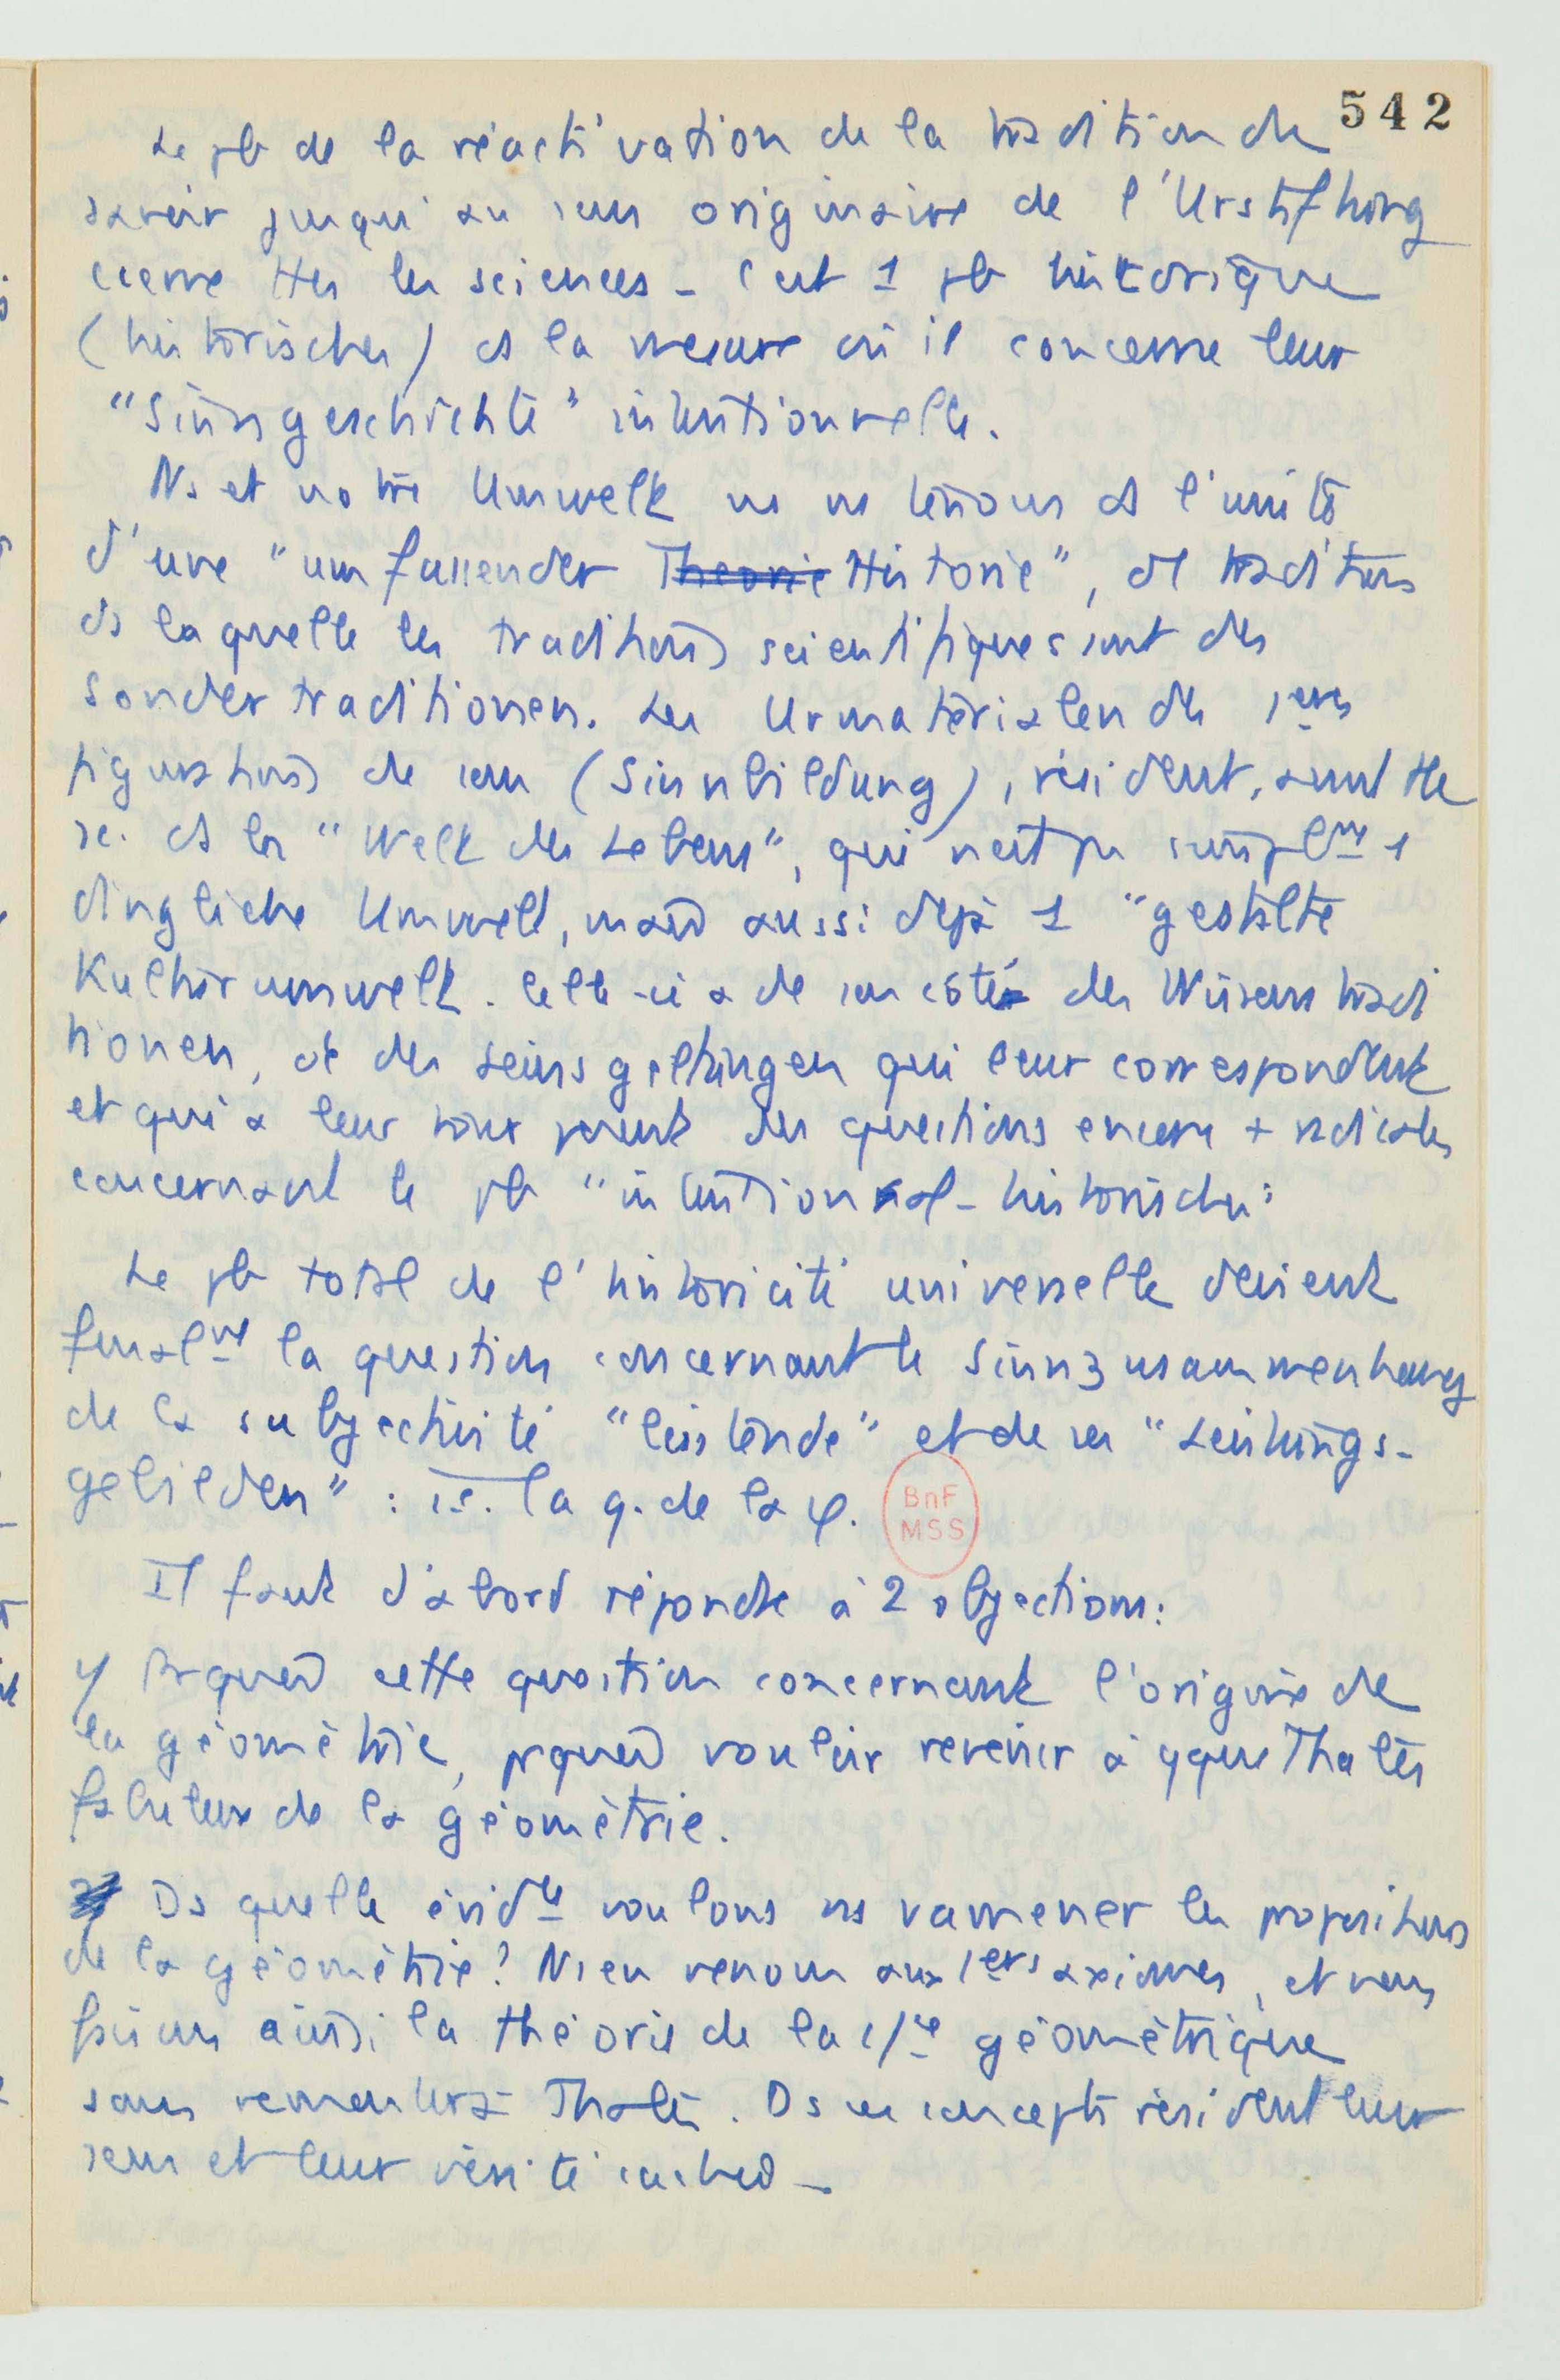 542
Le pb de la réactivation de la tradition de
savoir jusqu'au sens originaire de l'Urstiftung
cerne ttes les sciences - C'est 1 pb historique
(historisches) ds la mesure où il concerne leur
"Sinngeschichte" intentionnelle.
Ns et notre Umwelt ns ns tenons ds l'unité
d'une "umfassender Theorie Historie", de traditions
ds laquelle les traditions scientifiques sont des
Sondertraditionen. Les Urmaterialen des 1ères
figurations de sens (Sinnbildung), résident, avant tte
sc. ds la "Welt des Lebens", qui n'est pas simplmt 1
dingliche Umwelt, mais aussi déjà 1 "gestalte
Kulturumwelt. Celle-ci a de son côté des Wissenstradi
tionen, et des Seinsgeltungen qui leur correspondent
et qui à leur tour posent des questions encore + radicales
concernant le pb "intentional-historisches:
Le pb total de l'historicité universelle devient
finalmt la question concernant le Sinnzusammenhang
de la subjectivité "leistende" et de ses "Leistungs-
gebilden" : i.e. la q. de la φ.
BnF
MSS
Il faut d'abord répondre à 2 objections:
1/ Prquoi cette question concernant l'origine de
la géométrie, prquoi vouloir revenir à qque Thalès
fabuleux de la géométrie.
2/ Ds quelle évidce voulons ns ramener les propositions
de la géométrie? Ns en venons aux 1ers axiomes, et nous
faisons ainsi la théorie de la géométrique
sans remonter à Thalès. Ds ces concepts résident leur
sens et leur vérité cachés -